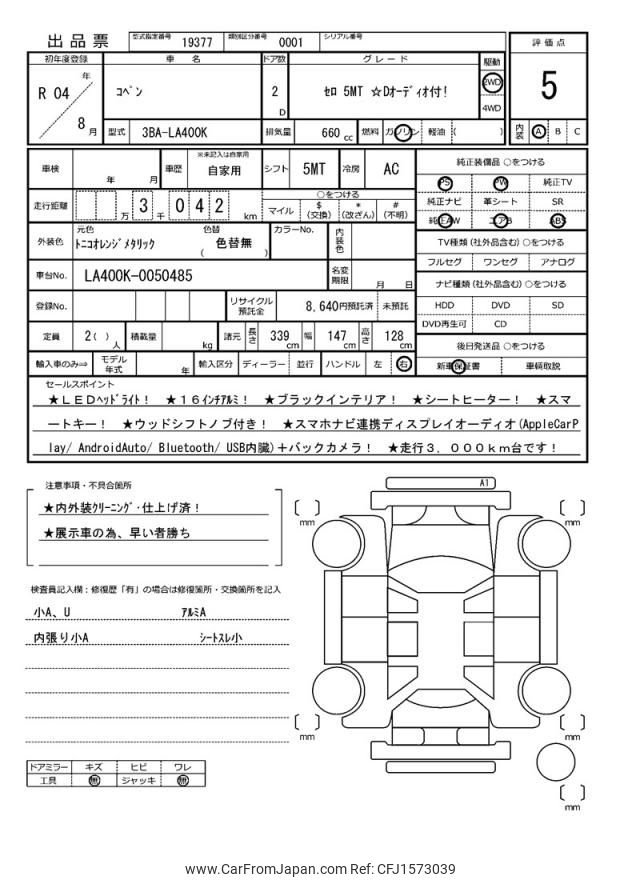 出品票 型式指定番号 19377 類別区分番号 0001 シリアル番号
評価点
5
初年度登録 車 名 ドア数 グレード 駆動
R 04 年 8 月
コペン 2 D セロ 5MT ☆Dオーディオ付! 2WD
4WD
型式 3BA-LA400K 排気量 660 cc 燃料 ガソリン 軽油 ( ) 内装 A B C
車検 年 月 車歴 ※未記入は自家用 自家用 シフト 5MT 冷房 AC
純正装備品 ○をつける
PS PW 純正TV
純正ナビ 革シート SR
純正AW エアB ABS
走行距離 万 3 千 0 4 2 km ○をつける
マイル $(交換) *(改ざん) #(不明)
外装色 元色 トニコオレンジメタリック 色替 色替無 ( ) カラーNo. 内装色
TV種類(社外品含む)○をつける
フルセグ ワンセグ アナログ
車台No. LA400K-0050485 名変期限 月 日
ナビ種類(社外品含む)○をつける
HDD DVD SD
DVD再生可 CD
登録No. リサイクル預託金 8,640円預託済 未預託
定員 2( ) 人 積載量 kg 諸元 長さ 339 cm 幅 147 cm 高さ 128 cm
後日発送品 ○をつける
新車保証書 車輌取説
輸入車のみ⇒ モデル年式 年 輸入区分 ディーラー 並行 ハンドル 左 右
セールスポイント
★LEDヘッドライト! ★16インチアルミ! ★ブラックインテリア! ★シートヒーター! ★スマ
ートキー! ★ウッドシフトノブ付き! ★スマホナビ連携ディスプレイオーディオ(AppleCarP
lay/ AndroidAuto/ Bluetooth/ USB内臓)+バックカメラ! ★走行3.000km台です!
注意事項・不具合箇所
★内外装クリーニング・仕上げ済!
★展示車の為、早い者勝ち
検査員記入欄:修復歴「有」の場合は修復箇所・交換箇所を記入
小A、U アルミA
内張り小A シートスレ小
ドアミラー キズ ヒビ ワレ
工具 無 ジャッキ 無
A1
mm
mm
mm
mm
mm
www.CarFromJapan.com Ref: CFJ1573039